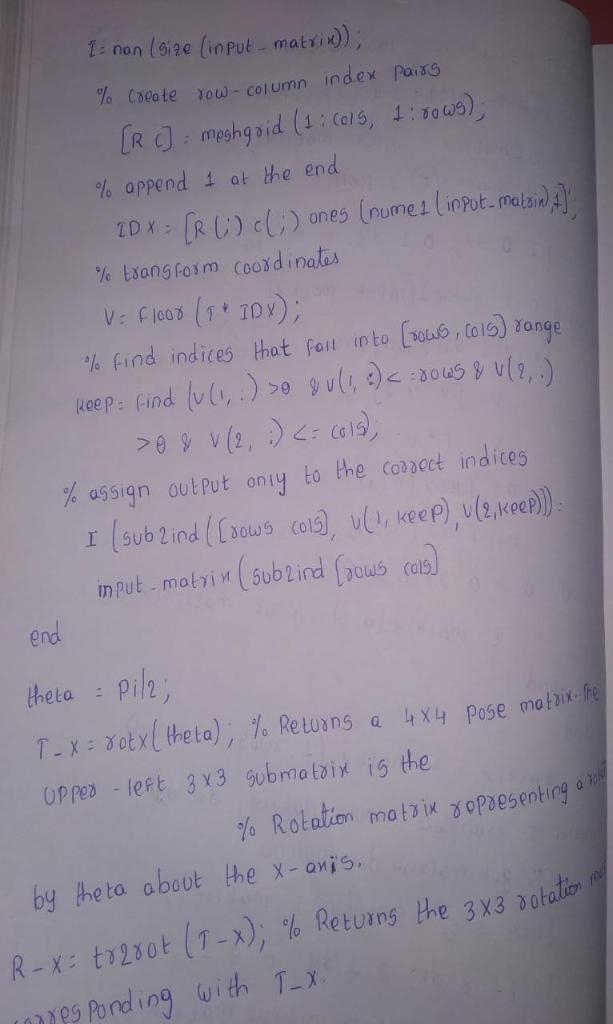 I = nan (size (input_matrix));
% Create row-column index pairs
[R C] = meshgrid (1:cols, 1:rows);
% append 1 at the end
IDX = [R(:) c(:) ones (numel (input_matrix),1)]';
% transform coordinates
V = floor (T * IDX);
% find indices that fall into [rows, cols] range
keep = find (v(1,:) >0 & v(1,:) <=rows & v(2,:)
>0 & v(2,:) <= cols);
% assign output only to the correct indices
I (sub2ind ([rows cols], v(1,keep), v(2,keep))) =
input_matrix (sub2ind [rows cols]
end
theta = pi/2;
T_X = rotx(theta); % Returns a 4x4 pose matrix. The
upper-left 3x3 submatrix is the
% Rotation matrix representing a
by theta about the x-axis.
R_X = tr2rot (T_X); % Returns the 3x3 rotation
corresponding with T_X.